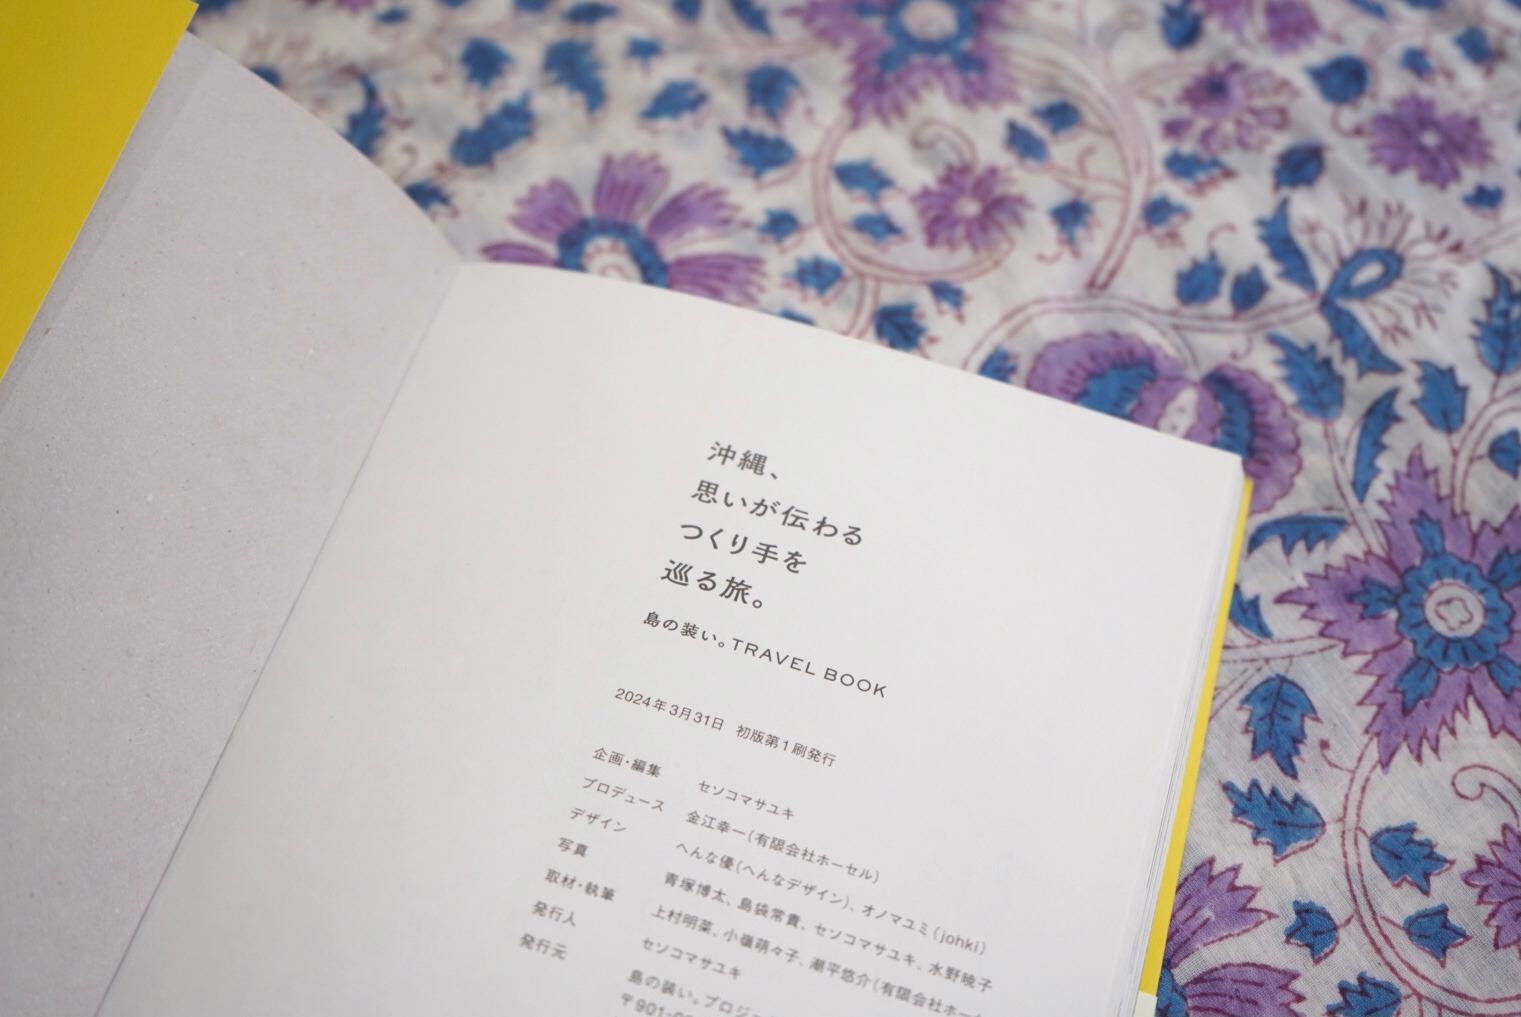 沖縄、
思いが伝わる
つくり手を
巡る旅。
島の装い。TRAVEL BOOK
2024年3月31日 初版第1刷発行
企画・編集 セソコマサユキ
プロデュース 金江幸一(有限会社ホーセル)
デザイン へんな優(へんなデザイン)、オノマユミ(johki)
写真 青塚博太、島袋常貴、セソコマサユキ、水野暁子
取材・執筆 上村明菜、小嶺萌々子、瀬平悠介(有限会社ホー
発行人 セソコマサユキ
発行元 島の装い。プロジ
〒901-0